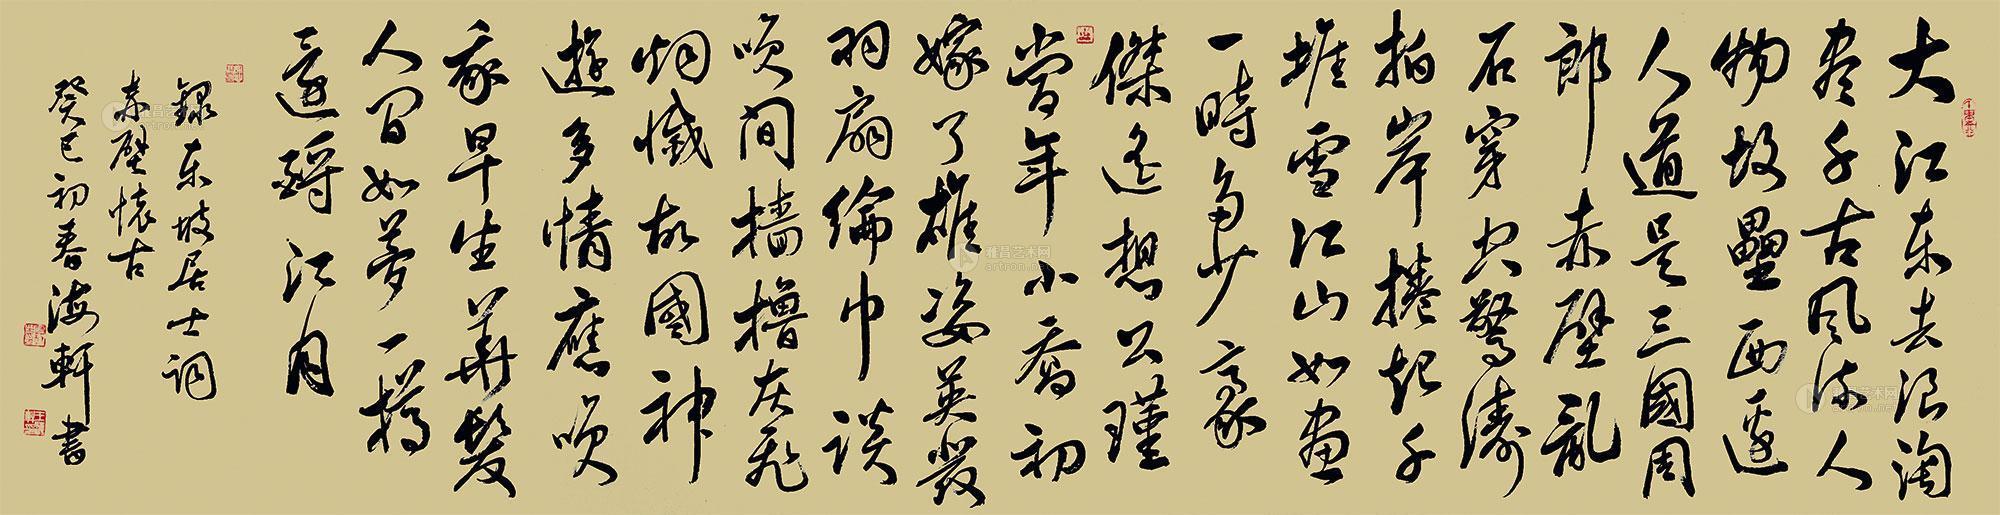 大江東去浪淘
盡千古風流人
物故壘西邊
人道是三國周
郎赤壁亂
石穿空驚濤
拍岸捲起千
堆雪江山如畫
一時多少豪
傑遙想公瑾
當年小喬初
嫁了雄姿英發
羽扇綸巾談
笑間檣櫓灰飛
烟滅故國神
遊多情應笑
我早生華髮
人間如夢一樽
還酹江月
錄東坡居士詞
赤壁懷古
癸巳初春海軒書
雅昌艺术网
artron.net